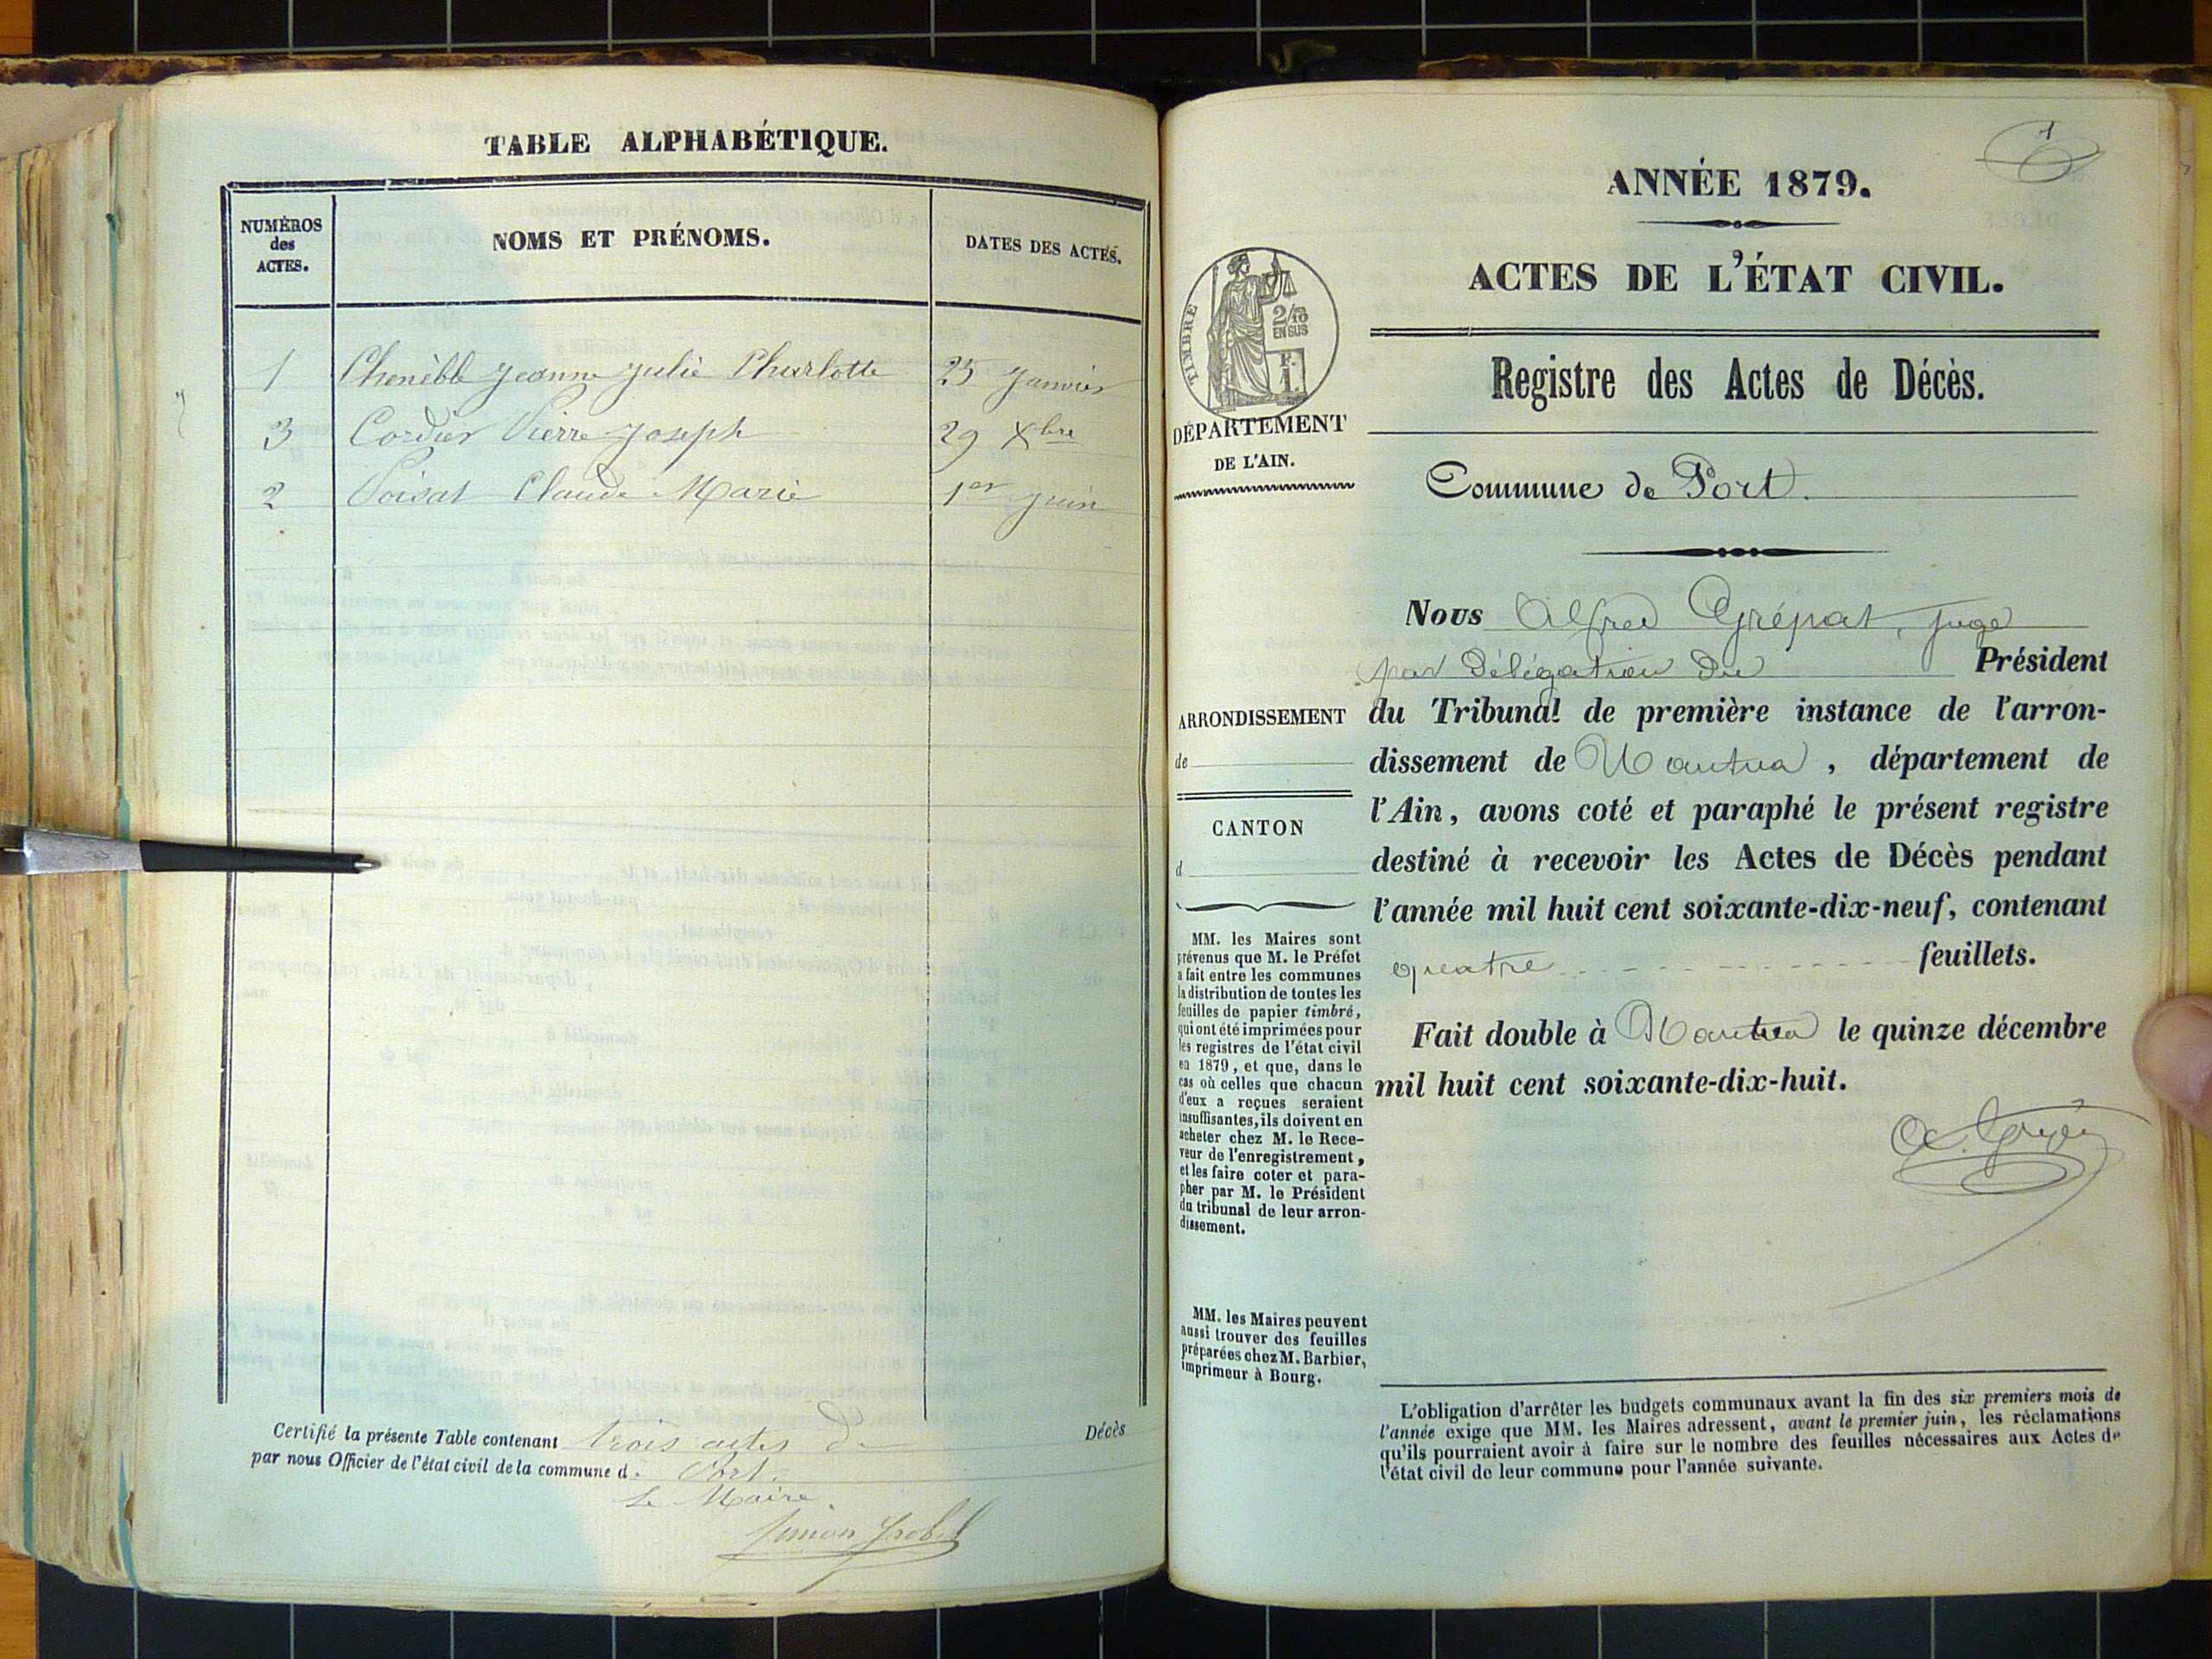 TABLE ALPHABÉTIQUE.
NUMÉROS
des
ACTES.
NOMS ET PRÉNOMS.
DATES DES ACTES.
1 Jeanne Julie Charlotte 25 Janvier
3 Cordier Pierre Joseph 29 Xbre
2 Poisat Claude Marie 1er Juin
Certifié la présente Table contenant trois actes de Décès
par nous Officier de l'état civil de la commune d. Port.
Le Maire.
1
ANNÉE 1879.
ACTES DE L'ÉTAT CIVIL.
TIMBRE
2/10
EN SUS
F.
1.
Registre des Actes de Décès.
DÉPARTEMENT
DE L'AIN.
Commune de Port.
Nous Alfred Grépat, juge
par délégation du Président
du Tribunal de première instance de l'arron-
dissement de Nantua, département de
l'Ain, avons coté et paraphé le présent registre
destiné à recevoir les Actes de Décès pendant
l'année mil huit cent soixante-dix-neuf, contenant
quatre feuillets.
Fait double à Nantua le quinze décembre
mil huit cent soixante-dix-huit.
ARRONDISSEMENT
de
CANTON
d
MM. les Maires sont
prévenus que M. le Préfet
a fait entre les communes
la distribution de toutes les
feuilles de papier timbré,
qui ont été imprimées pour
les registres de l'état civil
en 1879, et que, dans le
cas où celles que chacun
d'eux a reçues seraient
insuffisantes, ils doivent en
acheter chez M. le Rece-
veur de l'enregistrement,
et les faire coter et para-
pher par M. le Président
du tribunal de leur arron-
dissement.
MM. les Maires peuvent
aussi trouver des feuilles
préparées chez M. Barbier,
imprimeur à Bourg.
L'obligation d'arrêter les budgets communaux avant la fin des six premiers mois de
l'année exige que MM. les Maires adressent, avant le premier juin, les réclamations
qu'ils pourraient avoir à faire sur le nombre des feuilles nécessaires aux Actes de
l'état civil de leur commune pour l'année suivante.